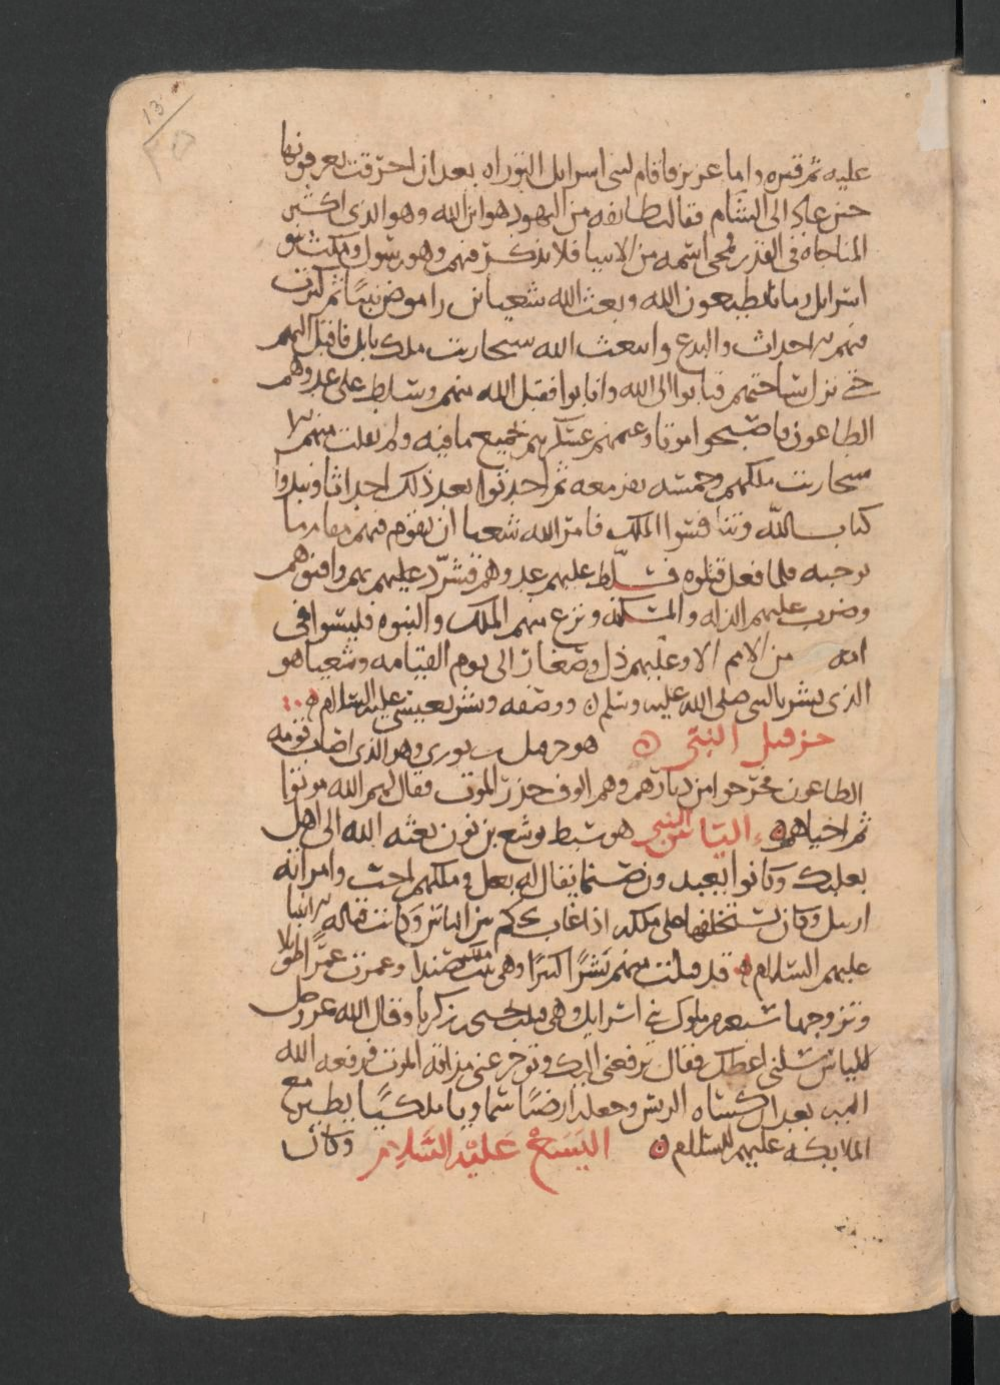 عليه ثم قبره واما عزير فاقام لبنى اسرايل التوراه بعد ان احترقت يعرفونها
حين عاد الى الشام فقالت طايفه من اليهود هو ابن الله وهو الذى اكثر
المناجاه فى القدر فمحى اسمه من الانبيا فلا يذكر فيهم وهو رسول ومكث بنو
اسرايل زمانا يطيعون الله وبعث الله شعيا بن راموص نبيا ثم كثرت
فيهم الاحداث والبدع وابتعث الله سنحاريب ملك بابل فاقبل اليهم
حتى نزل بساحتهم فتابوا الى الله وانابوا فقبل الله منهم وسلط على عدوهم
الطاعون فاصبحوا موتا وغنمهم عسكرهم بجميع ما فيه ولم يفلت منهم الا
سنحاريب ملكهم وخمسه نفر معه ثم احدثوا بعد ذلك احداثا ونبذوا
كتاب الله وتنافسوا الملك فامر الله شعيا ان يقوم فيهم مقاما
بوحيه فلما فعل قتلوه فسلط عليهم عدوهم فشرد عليهم بهم وافنوهم
وضرب عليهم الذله والمسكنه ونزع منهم الملك والنبوه فليسوا فى
امه من الامم الا وعليهم ذل وصغار الى يوم القيامه وشعيا هو
الذى بشر بالنبى صلى الله عليه وسلم ووصفه وبشر بعيسى عليه السلام
حزقيل النبى هو حزقيل بن بورى وهو الذى اصاب قومه
الطاعون فخرجوا من ديارهم وهم الوف حذر الموت فقال لهم الله موتوا
ثم احياهم الياس النبى هو سبط يوشع بن نون بعثه الله الى اهل
بعلبك وكانوا يعبدون صنما يقال له بعل وملكهم احب وامراته
ازبيل وكان يستخلفها على ملكه اذا غاب تحكم بين الناس وكانت قتاله الانبيا
عليهم السلام قد قتلت منهم بشرا كثيرا وهى بنت ملك صيدا وعمرت عمرا طويلا
وتزوجها سبعه من ملوك بنى اسرايل وهى قتلت يحيى بن زكريا وقال الله عز وجل
لالياس سلنى اعطك فقال ترفعنى اليك وتوخر عنى مذاقه الموت فرفعه الله
اليه بعد ان كساه الريش وجعله ارضيا سماويا ملكيا يطير مع
الملايكه عليهم السلام اليسع عليه السلام وكان